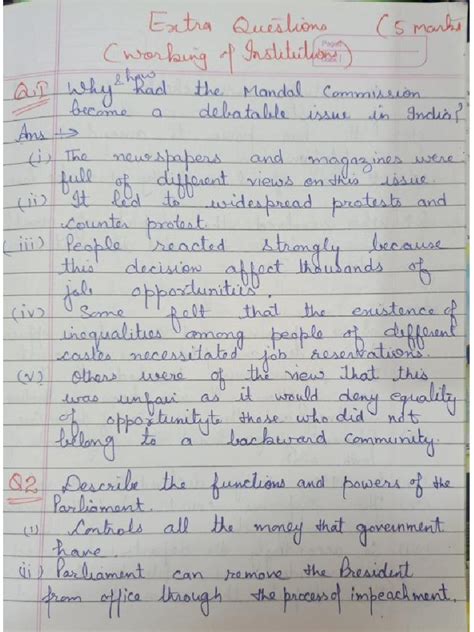 Extra Questions (5 marks
(Working of Institution)
Q.1 Why & how had the Mandal Commission
become a debatable issue in India?
Ans :→
(i) The newspapers and magazines were
full of different views on this issue.
(ii) It led to widespread protests and
counter protest.
(iii) People reacted strongly because
this decision affect thousands of
job opportunities.
(iv) Some felt that the existence of
inequalities among people of different
castes necessitated job reservations.
(v) Others were of the view that this
was unfair as it would deny equality
of opportunity to those who did not
belong to a backward community.
Q2 Describe the functions and powers of the
Parliament.
(i) Controls all the money that government
have.
(ii) Parliament can remove the President
from office through the process of impeachment.